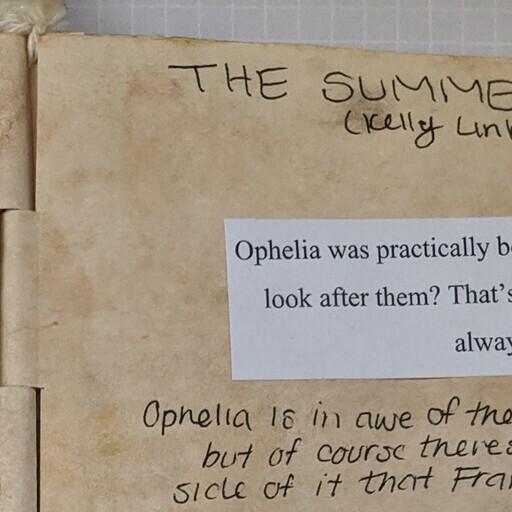 THE SUMME
(Kelly Link
Ophelia was practically b
look after them? That's
alway
Ophelia is in awe of the
but of course theres
side of it that Fra